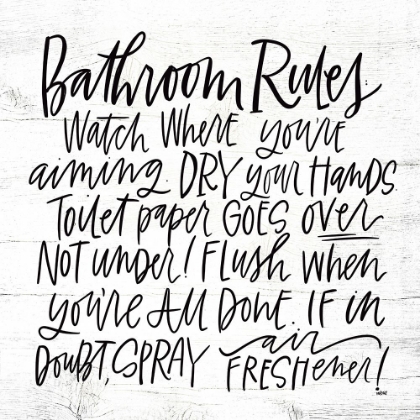 Bathroom Rules:
Watch Where you're
aiming. DRY your HANDS.
Toilet paper GOES over
NOT under! Flush when
you're All Done. IF in
Doubt, SPRAY air FRESHener!